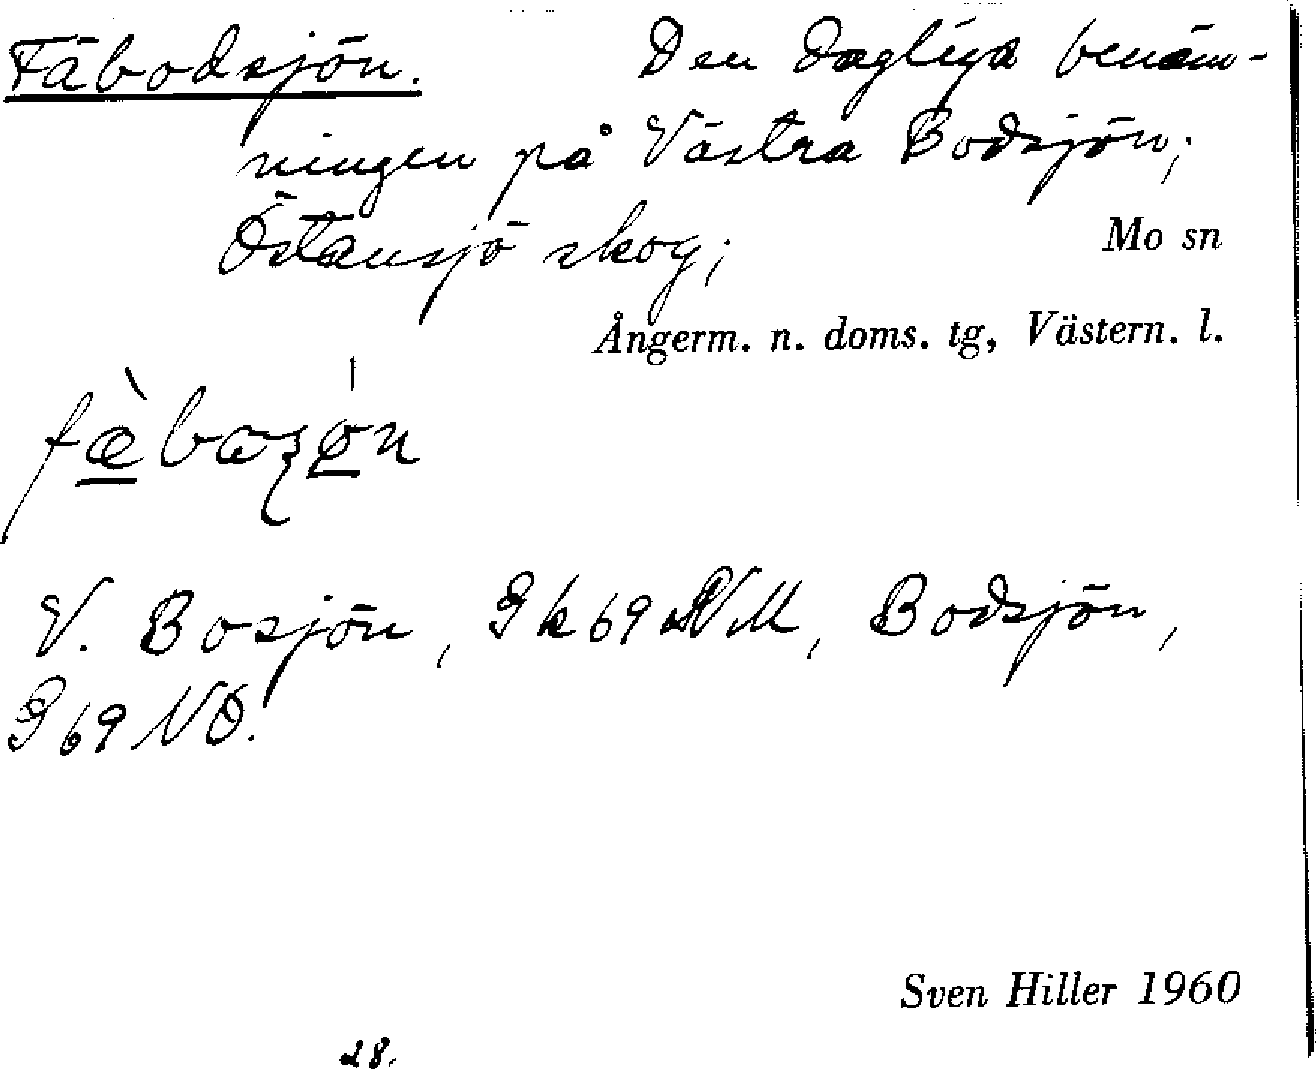 Fäbodsjön. Den dagliga benäm-
ningen på Västra Bodsjön;
Östansjö skog; Mo sn
Ångerm. n. doms. tg, Västern. l.
V. Bosjön, Gk 69 NVM, Bodsjön,
G 69 NO.
Sven Hiller 1960
28.